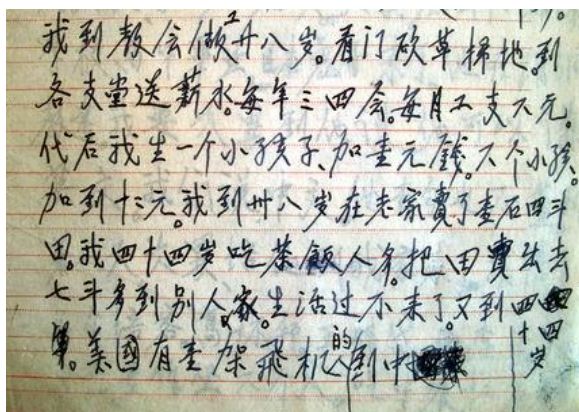 我到教会做工廾八岁。看门砍草掃地。到
各支堂送薪水。每年三四会。每月工支六元。
代后我生一个小孩子、加壹元錢。六个小孩、
加到十二元。我到卅八岁在老家賣了壹石四斗
田。我四十四岁吃茶飯人多。把田賣出去
七斗多到别人家。生活过不来了。又到四十四岁
美國有壹架飛机的